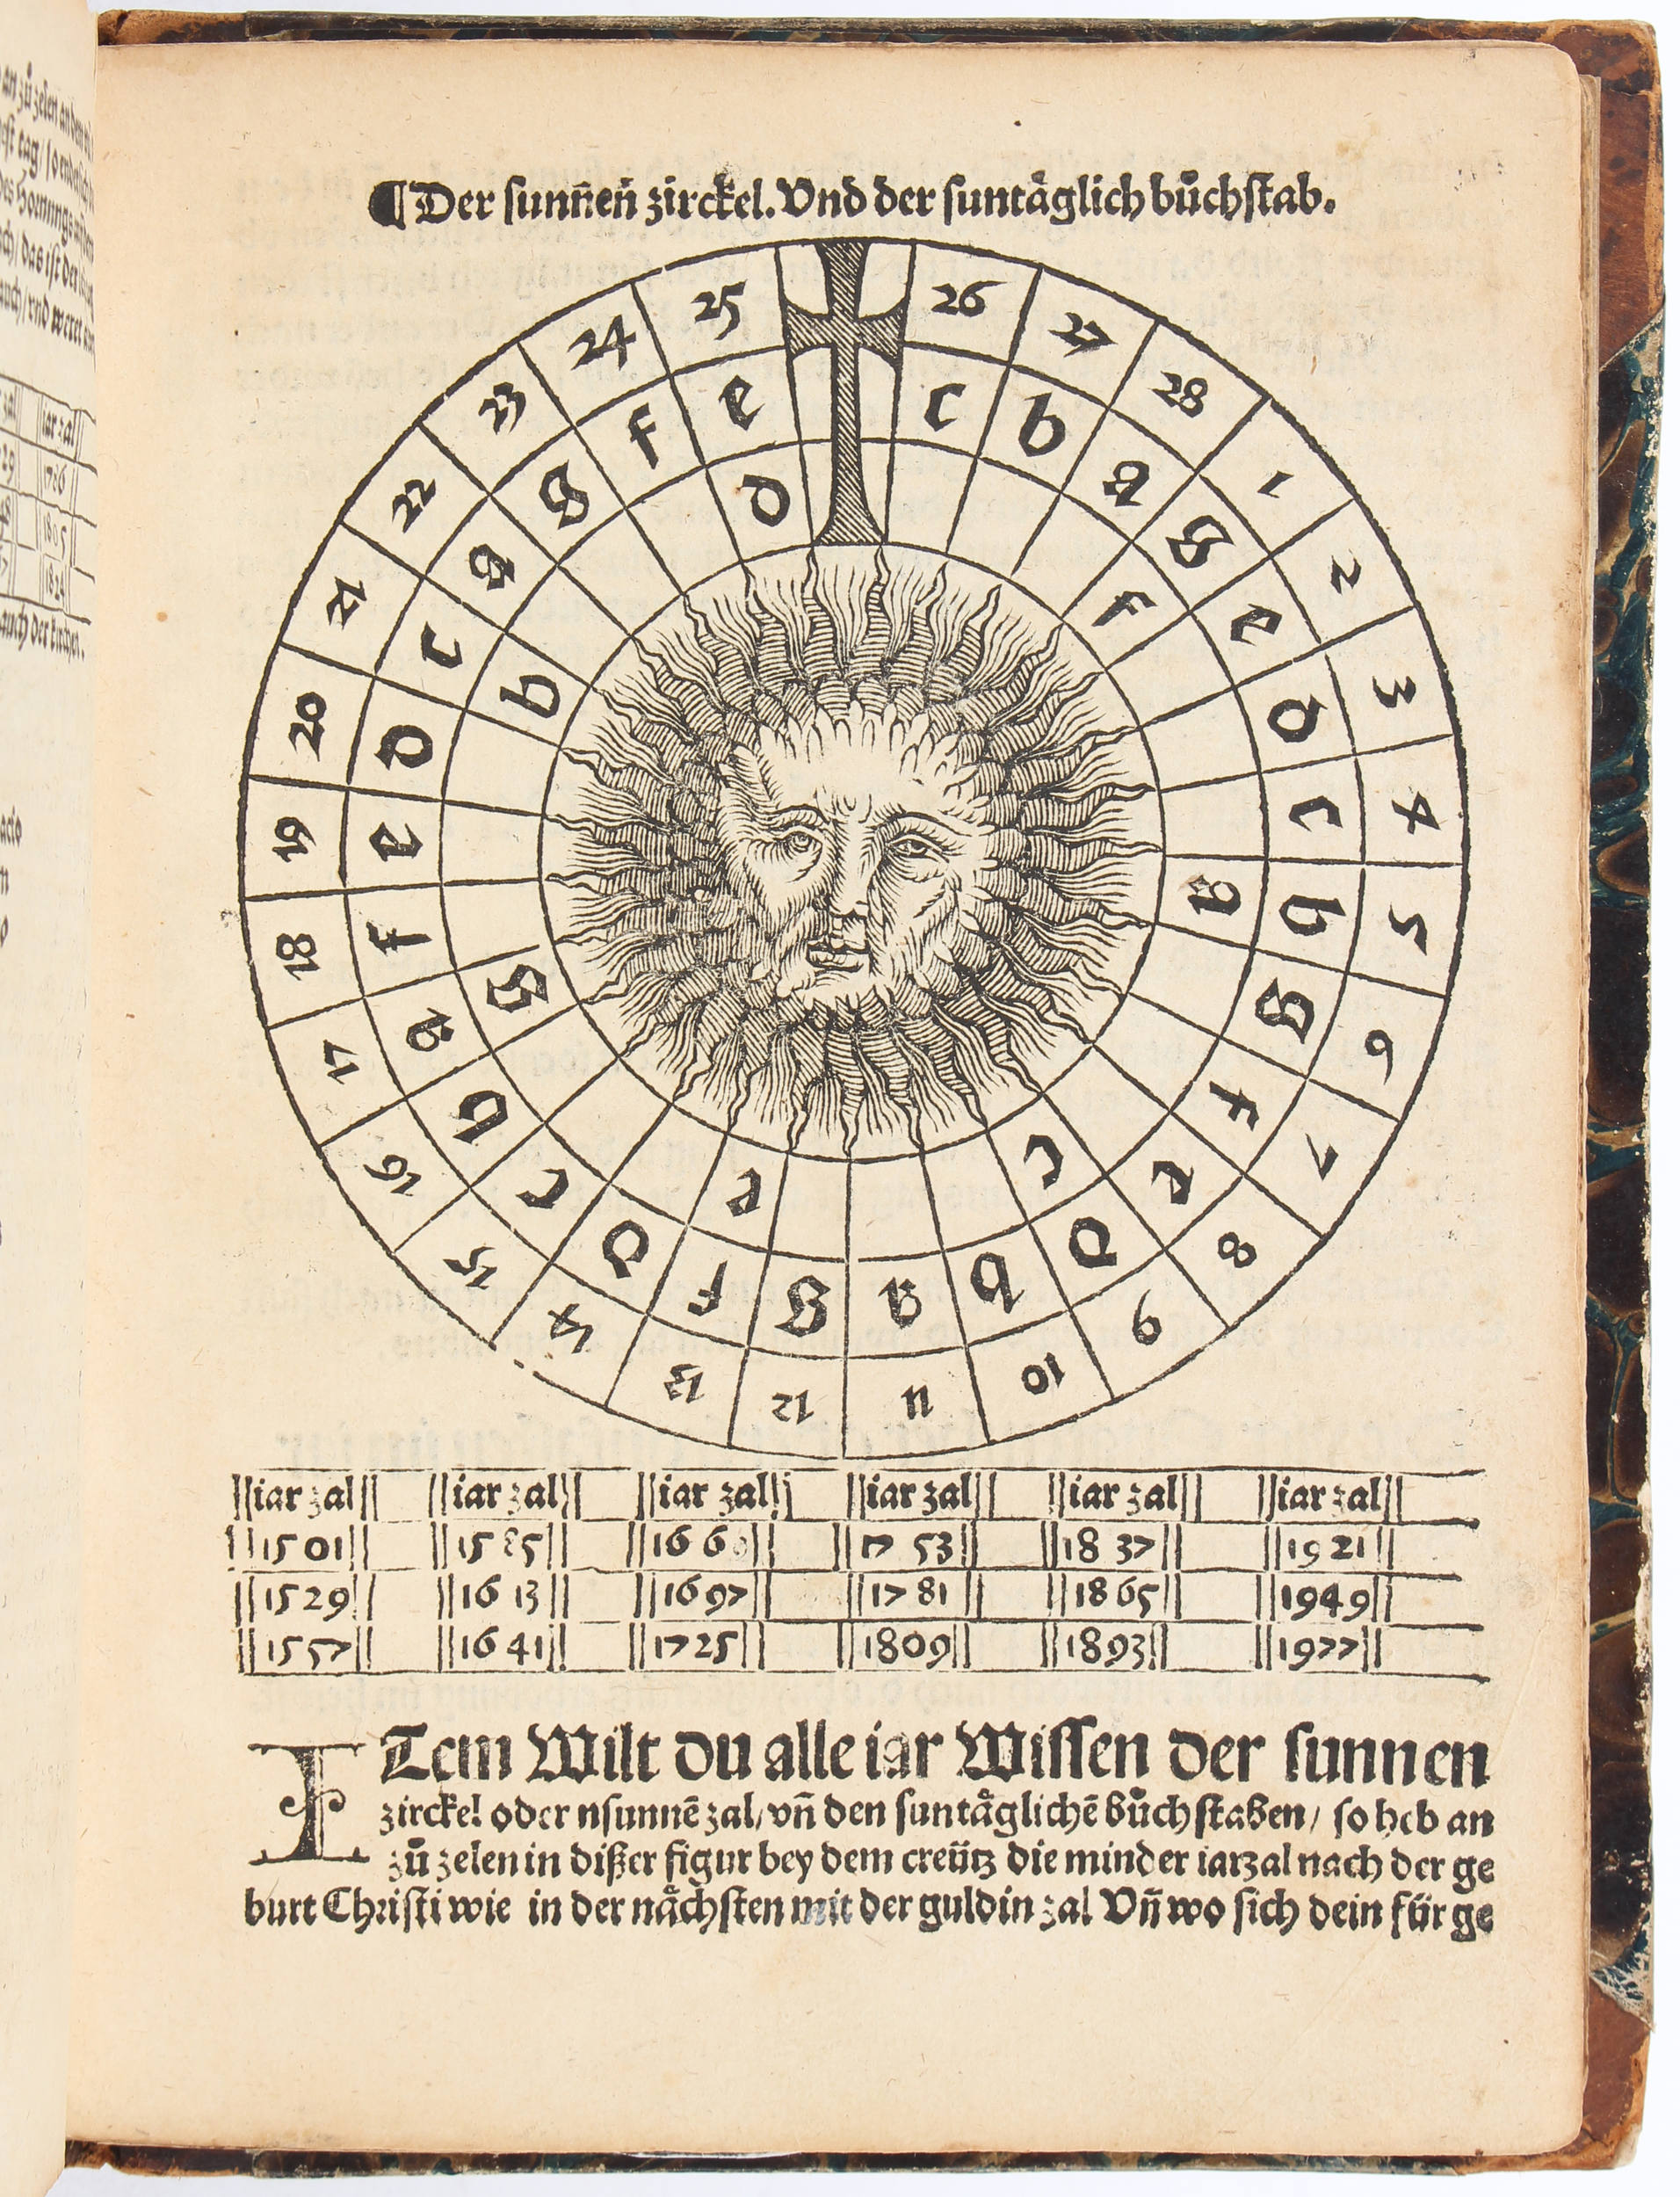 ¶Der sunnen̄ zirckel. Vnd der suntåglich bůchstab.
25 26 27 28 1 2 3 4 5 6 7 8 9 10 11 12 13 14 15 16 17 18 19 20 21 22 23 24
e c b a g e d c b g f e d b a g f d c b a f e d c a g f
d f a c e g b
iar zal iar zal iar zal iar zal iar zal iar zal
1501 1585 166 1753 1837 1921
1529 1613 1697 1781 1865 1949
1557 1641 1725 1809 1893 1977
ITem Wilt du alle iar Wissen der sunnen
zirckel oder nsunnē zal/ vn̄ den suntåglichē bůchstaben/ so heb an
zů zelen in dißer figur bey dem creütz die minder iarzal nach der ge
burt Christi wie in der nåchsten mit der guldin zal Vn̄ wo sich dein für ge